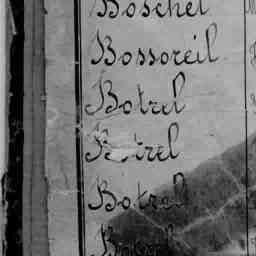 Boschel
Bossoreil
Botrel
Botrel
Botrel
Botrel